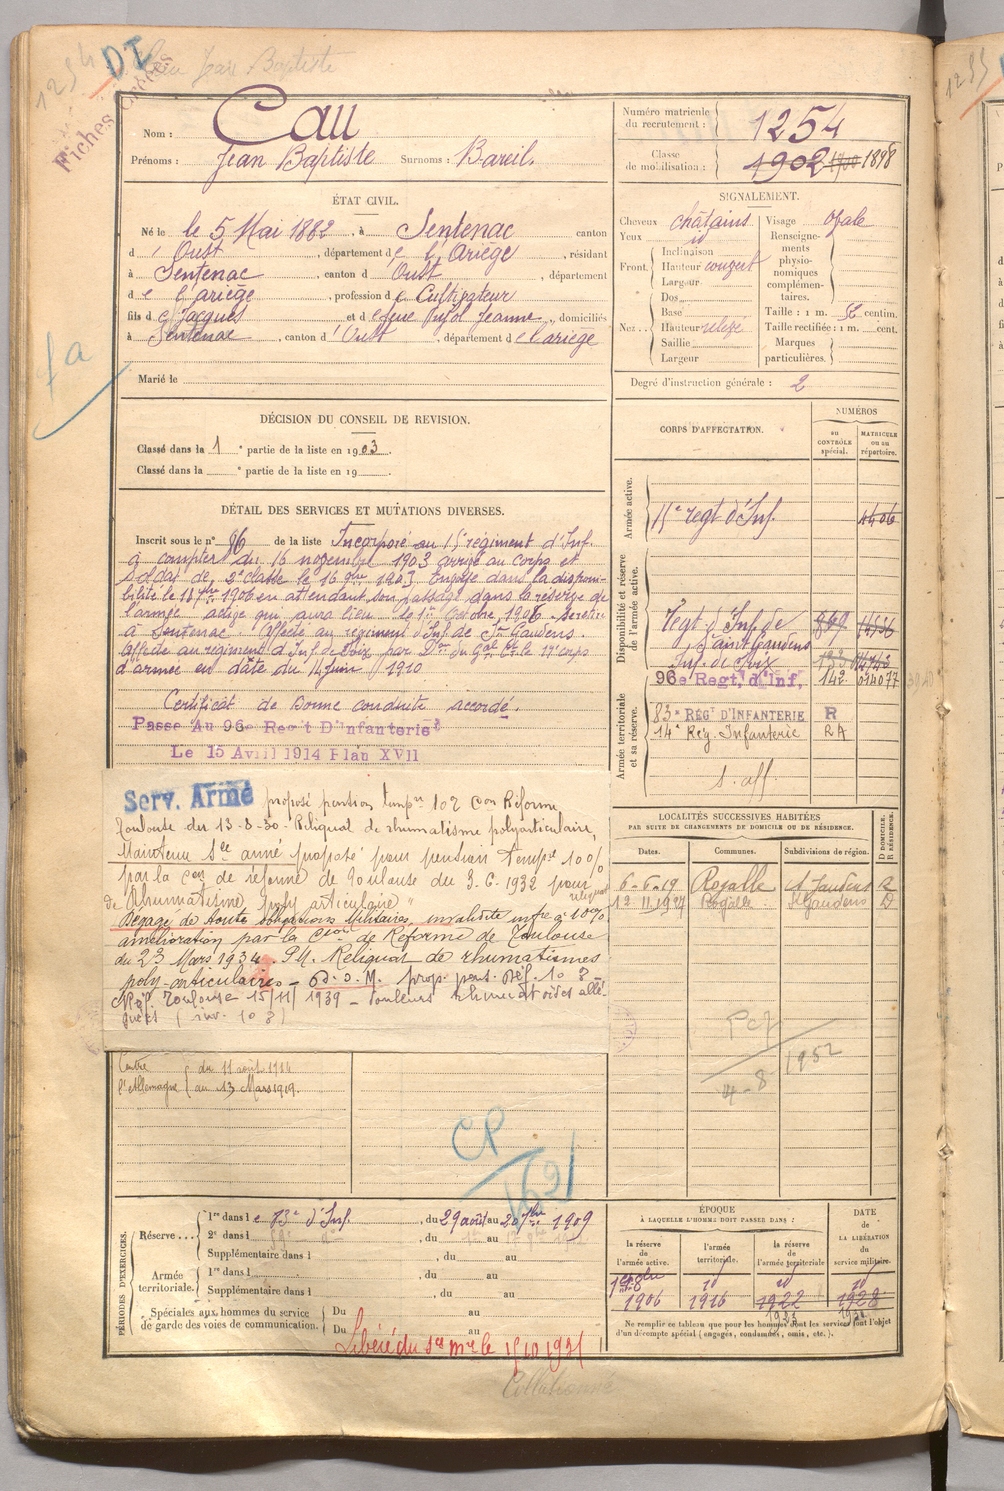 1254
DI
Jean Baptiste
Fiches
fa
Nom : Cau
Prénoms : Jean Baptiste Surnoms : Bareil.
Numéro matricule du recrutement : 1254
Classe de mobilisation : 1902 1900 1898
ÉTAT CIVIL.
Né le le 5 Mai 1882, à Sentenac canton
d' Oust, département de l'Ariège, résidant
à Sentenac, canton d' Oust, département
de l'ariège, profession de Cultivateur
fils de Jacques et de feue Pujol Jeanne, domiciliés
à Sentenac, canton d' Oust, département de l'ariège
Marié le
SIGNALEMENT.
Cheveux châtains
Yeux id
Front. Inclinaison
Hauteur couvert
Largeur
Nez. Dos
Base
Hauteur relevé
Saillie
Largeur
Visage ovale
Renseignements physionomiques complémentaires.
Taille : 1 m. 52 centim.
Taille rectifiée : 1 m. cent.
Marques particulières.
Degré d'instruction générale : 2
DÉCISION DU CONSEIL DE REVISION.
Classé dans la 1e partie de la liste en 1903.
Classé dans la e partie de la liste en 19
DÉTAIL DES SERVICES ET MUTATIONS DIVERSES.
Inscrit sous le n° 86 de la liste Incorporé au 15e régiment d'Inf.
à compter du 16 novembre 1903 arrivé au corps et
soldat de 2e classe le 16 9bre 1903. Envoyé dans la disponi-
bilité le 18 7bre 1906 en attendant son passage dans la réserve de
l'armée active qui aura lieu le 1er Octobre 1906. Se retire
à Sentenac. Affecté au régiment d'Inf. de St Gaudens.
Affecté au régiment d'Inf. de Foix par Don du Gal Ct le 17e corps
d'armée en date du 14 Juin 1910
Certificat de bonne conduite accordé.
Passé Au 96e Reg't D'Infanterie
Le 15 Avril 1914 Plan XVII
Serv. Armé proposé pension tempre 10% Con Réforme
Toulouse du 13-8-30. Reliquat de rhumatisme polyarticulaire,
Maintenu Sce armé proposé pour pension Tempre 10%
par la con de réforme de Toulouse du 3.6.1932 pour reliquat
de Rhumatisme poly articulaire"
Dégagé de toute obligations Militaires, invalidité infre à 10%
amélioration par la Con de Réforme de Toulouse
du 23 Mars 1934. Pr. Reliquat de rhumatismes
poly-articulaires - D. O. M. prop. pens. Déf. 10 %
Réf. Toulouse 15/11/1939 - douleurs rhumatoïdes allé-
guées (inv. 10 %)
Contre l'Allemagne du 11 août 1914
au 13 Mars 1919.
CORPS D'AFFECTATION.
NUMÉROS
au CONTRÔLE spécial.
MATRICULE ou au répertoire.
Armée active.
15e regt d'Inf. 4406
Disponibilité et réserve de l'armée active.
Régt d'Inf. de 869 14536
Saint Gaudens
Inf. de Foix 133 14743
96e Regt, d'Inf, 142 014077
Armée territoriale et sa réserve.
83e RÉGt D'INFANTERIE R
14e Rég. Infanterie RA
s. aff
LOCALITÉS SUCCESSIVES HABITÉES
PAR SUITE DE CHANGEMENTS DE DOMICILE OU DE RÉSIDENCE.
Dates. Communes. Subdivisions de région. D DOMICILE. R RÉSIDENCE.
6-6-19 Rogalle St Gaudens R
12.11.1927 Rogalle St Gaudens D
4-8-1952
CP
PÉRIODES D'EXERCICES.
Réserve... 1re dans le 83e d'Inf., du 29 août au 20 7bre 1909
2e dans l, du au
Supplémentaire dans l, du au
Armée territoriale. 1re dans l, du au
Supplémentaire dans l, du au
Spéciales aux hommes du service de garde des voies de communication. Du au
Du au
Libéré du Sce mre le 15.10.1931
Collationné
ÉPOQUE
À LAQUELLE L'HOMME DOIT PASSER DANS :
la réserve de l'armée active. l'armée territoriale. la réserve de l'armée territoriale
DATE DE LA LIBÉRATION du service militaire.
1er 8bre id id id
1906 1916 1922 1928
Ne remplir ce tableau que pour les hommes dont les services font l'objet
d'un décompte spécial (engagés, condamnés, omis, etc.).